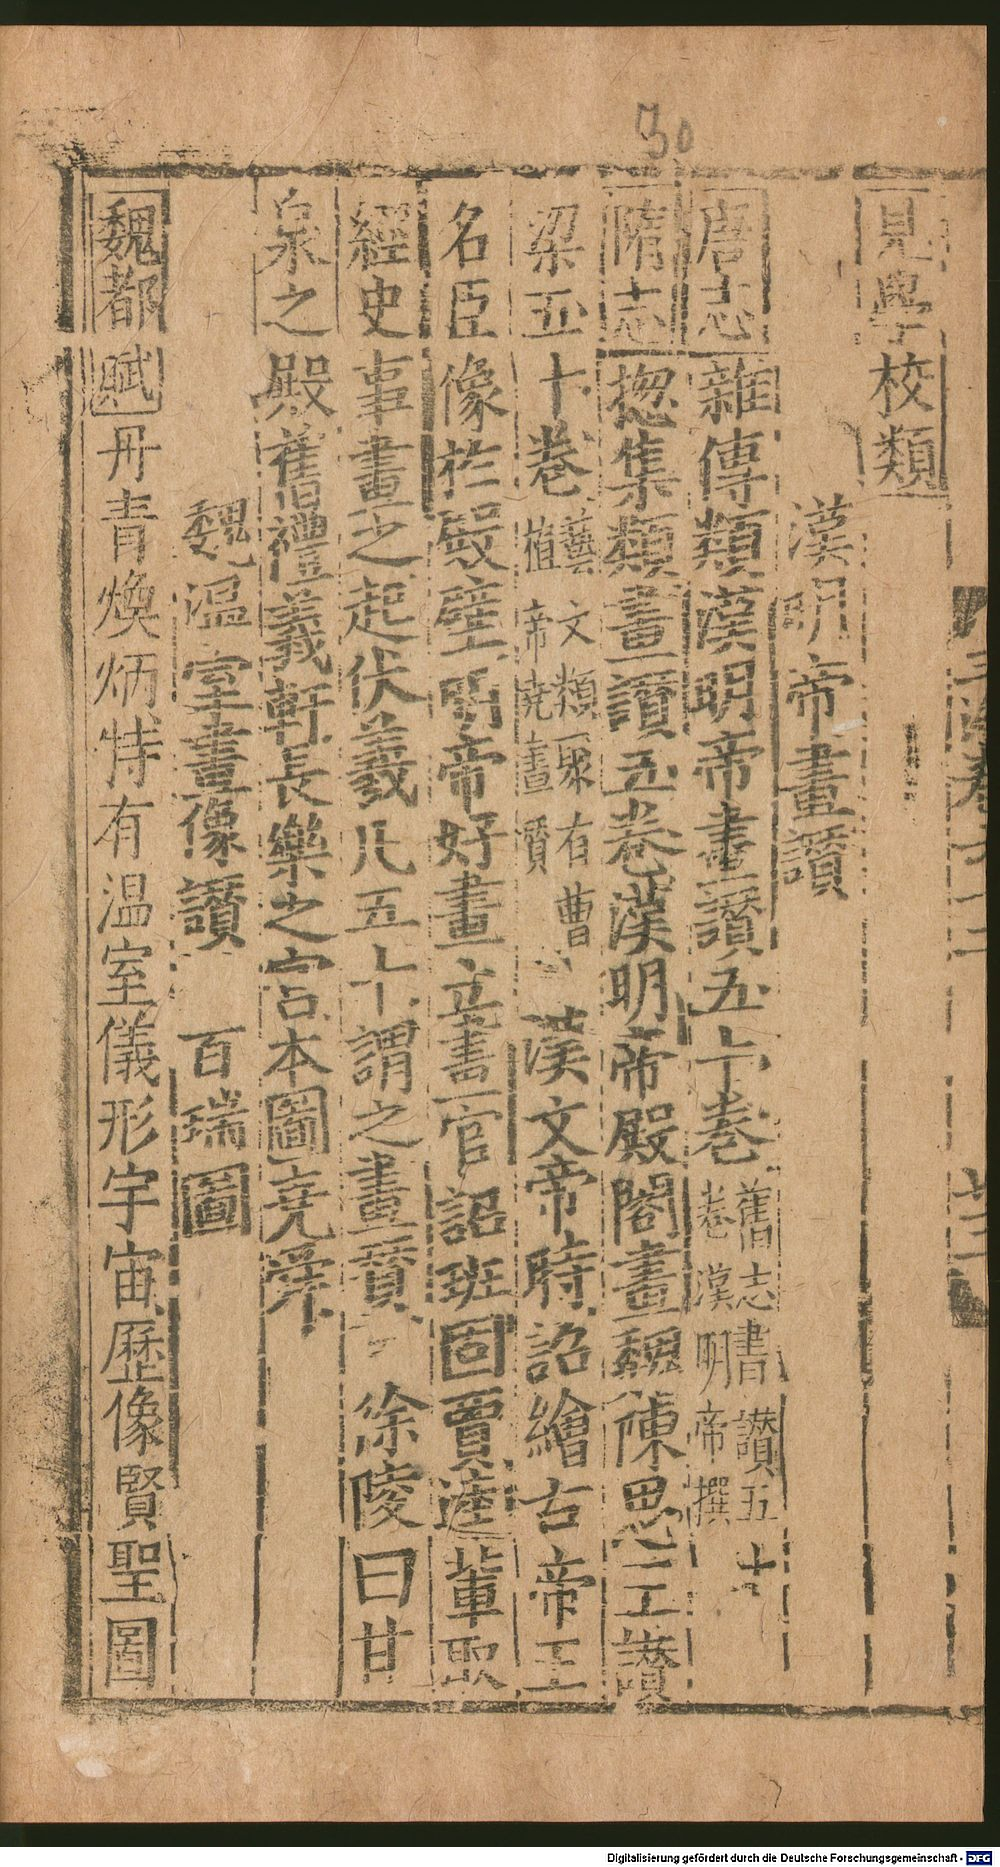 見學校類
漢明帝畫讚
唐志雜傳類漢明帝畫讚五十卷舊志畫讃五十卷漢明帝撰
隋志揔集類畫讃五卷漢明帝殿閣畫魏陳思王讃
梁五十卷藝文類聚有曹植帝堯畫賛漢文帝時詔繪古帝王
名臣像於殿壁明帝好畫立畫官詔班固賈逵軰取
經史事畫之起伏羲凡五十謂之畫賛 徐陵曰甘
泉之殿舊禮義軒長樂之宫本圖堯舜
魏温室畫像讃 百瑞圖
魏都賦丹青煥炳特有温室儀形宇宙歷像賢聖圖
30
Digitalisierung gefördert durch die Deutsche Forschungsgemeinschaft - DFG